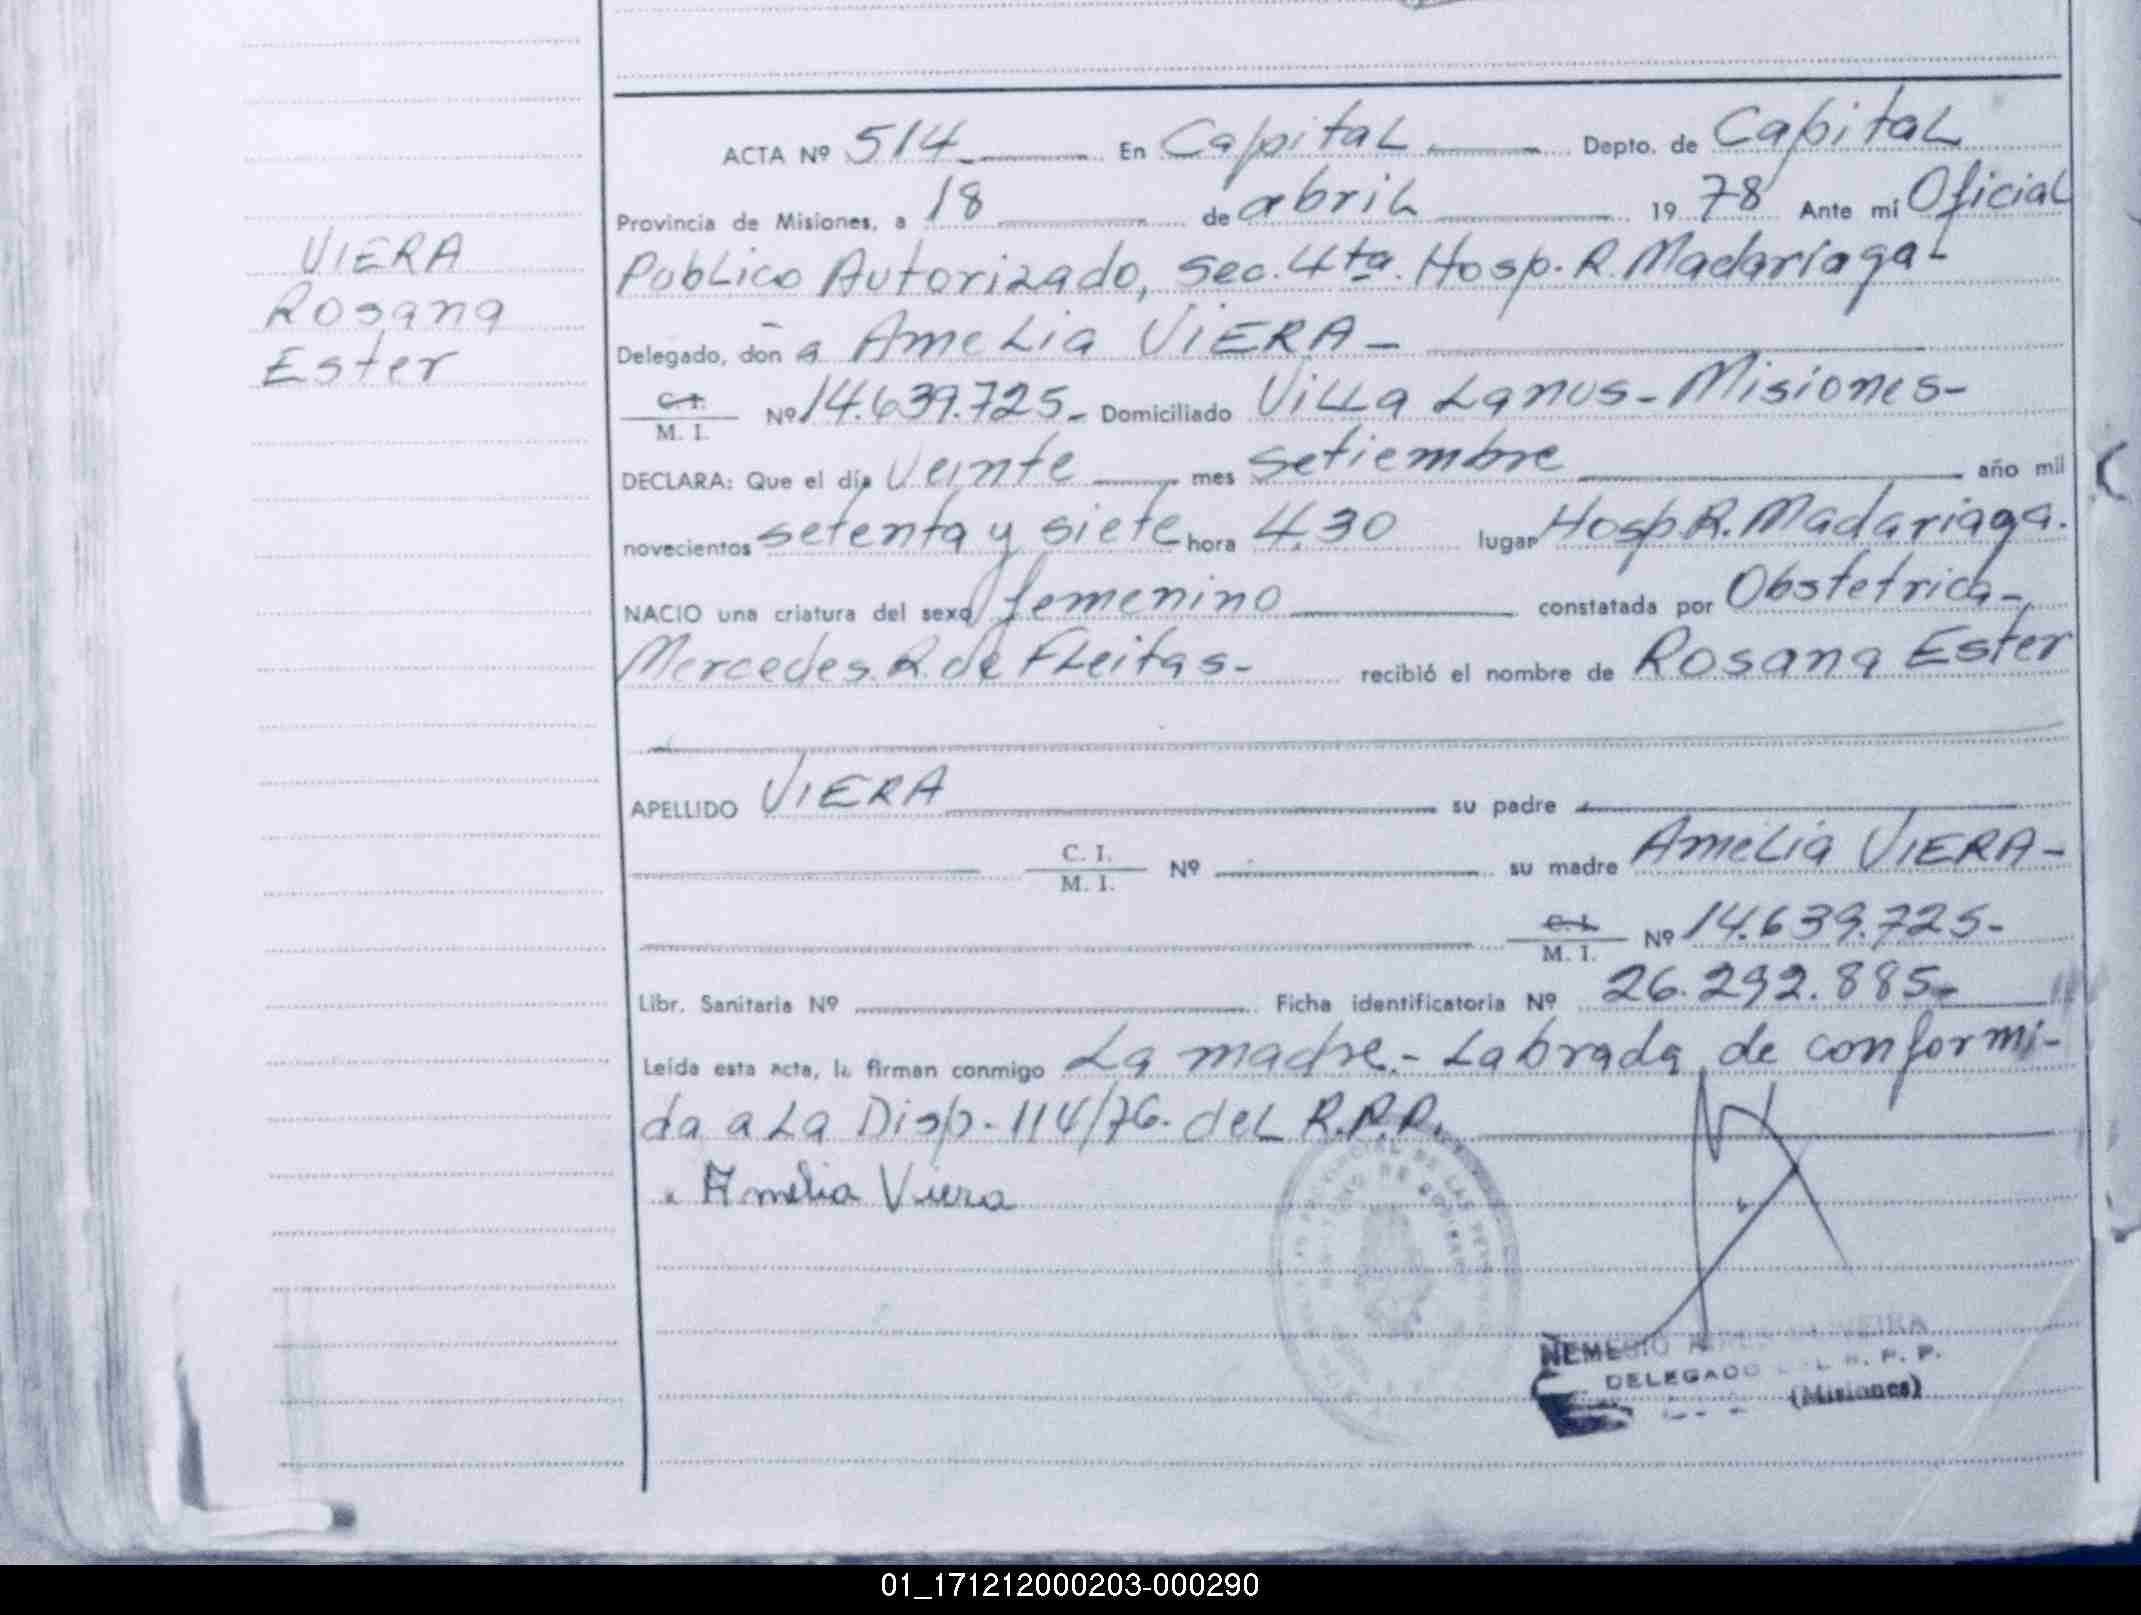 VIERA
Rosana
Ester
ACTA Nº 514 En Capital Depto. de Capital
Provincia de Misiones, a 18 de abril 1978 Ante mí Oficial
Publico Autorizado, Sec. 4ta. Hosp. R. Madariaga-
Delegado, don̄a Amelia VIERA-
C. I. / M. I. Nº 14.639.725- Domiciliado Villa Lanus-Misiones-
DECLARA: Que el día Veinte mes Setiembre año mil
novecientos setenta y siete hora 4.30 lugar Hosp R. Madariaga.
NACIO una criatura del sexo femenino constatada por Obstetrica-
Mercedes R. de Fleitas- recibió el nombre de Rosana Ester
APELLIDO VIERA su padre
C. I. / M. I. Nº su madre Amelia VIERA-
C. I. / M. I. Nº 14.639.725-
Libr. Sanitaria Nº Ficha identificatoria Nº 26.292.885-
Leída esta acta, la firman conmigo La madre.- Labrada de conformi-
da a La Disp. 114/76. del R.P.P.
Amelia Viera
NEMESIO
DELEGADO R. P. P.
(Misiones)
01_171212000203-000290